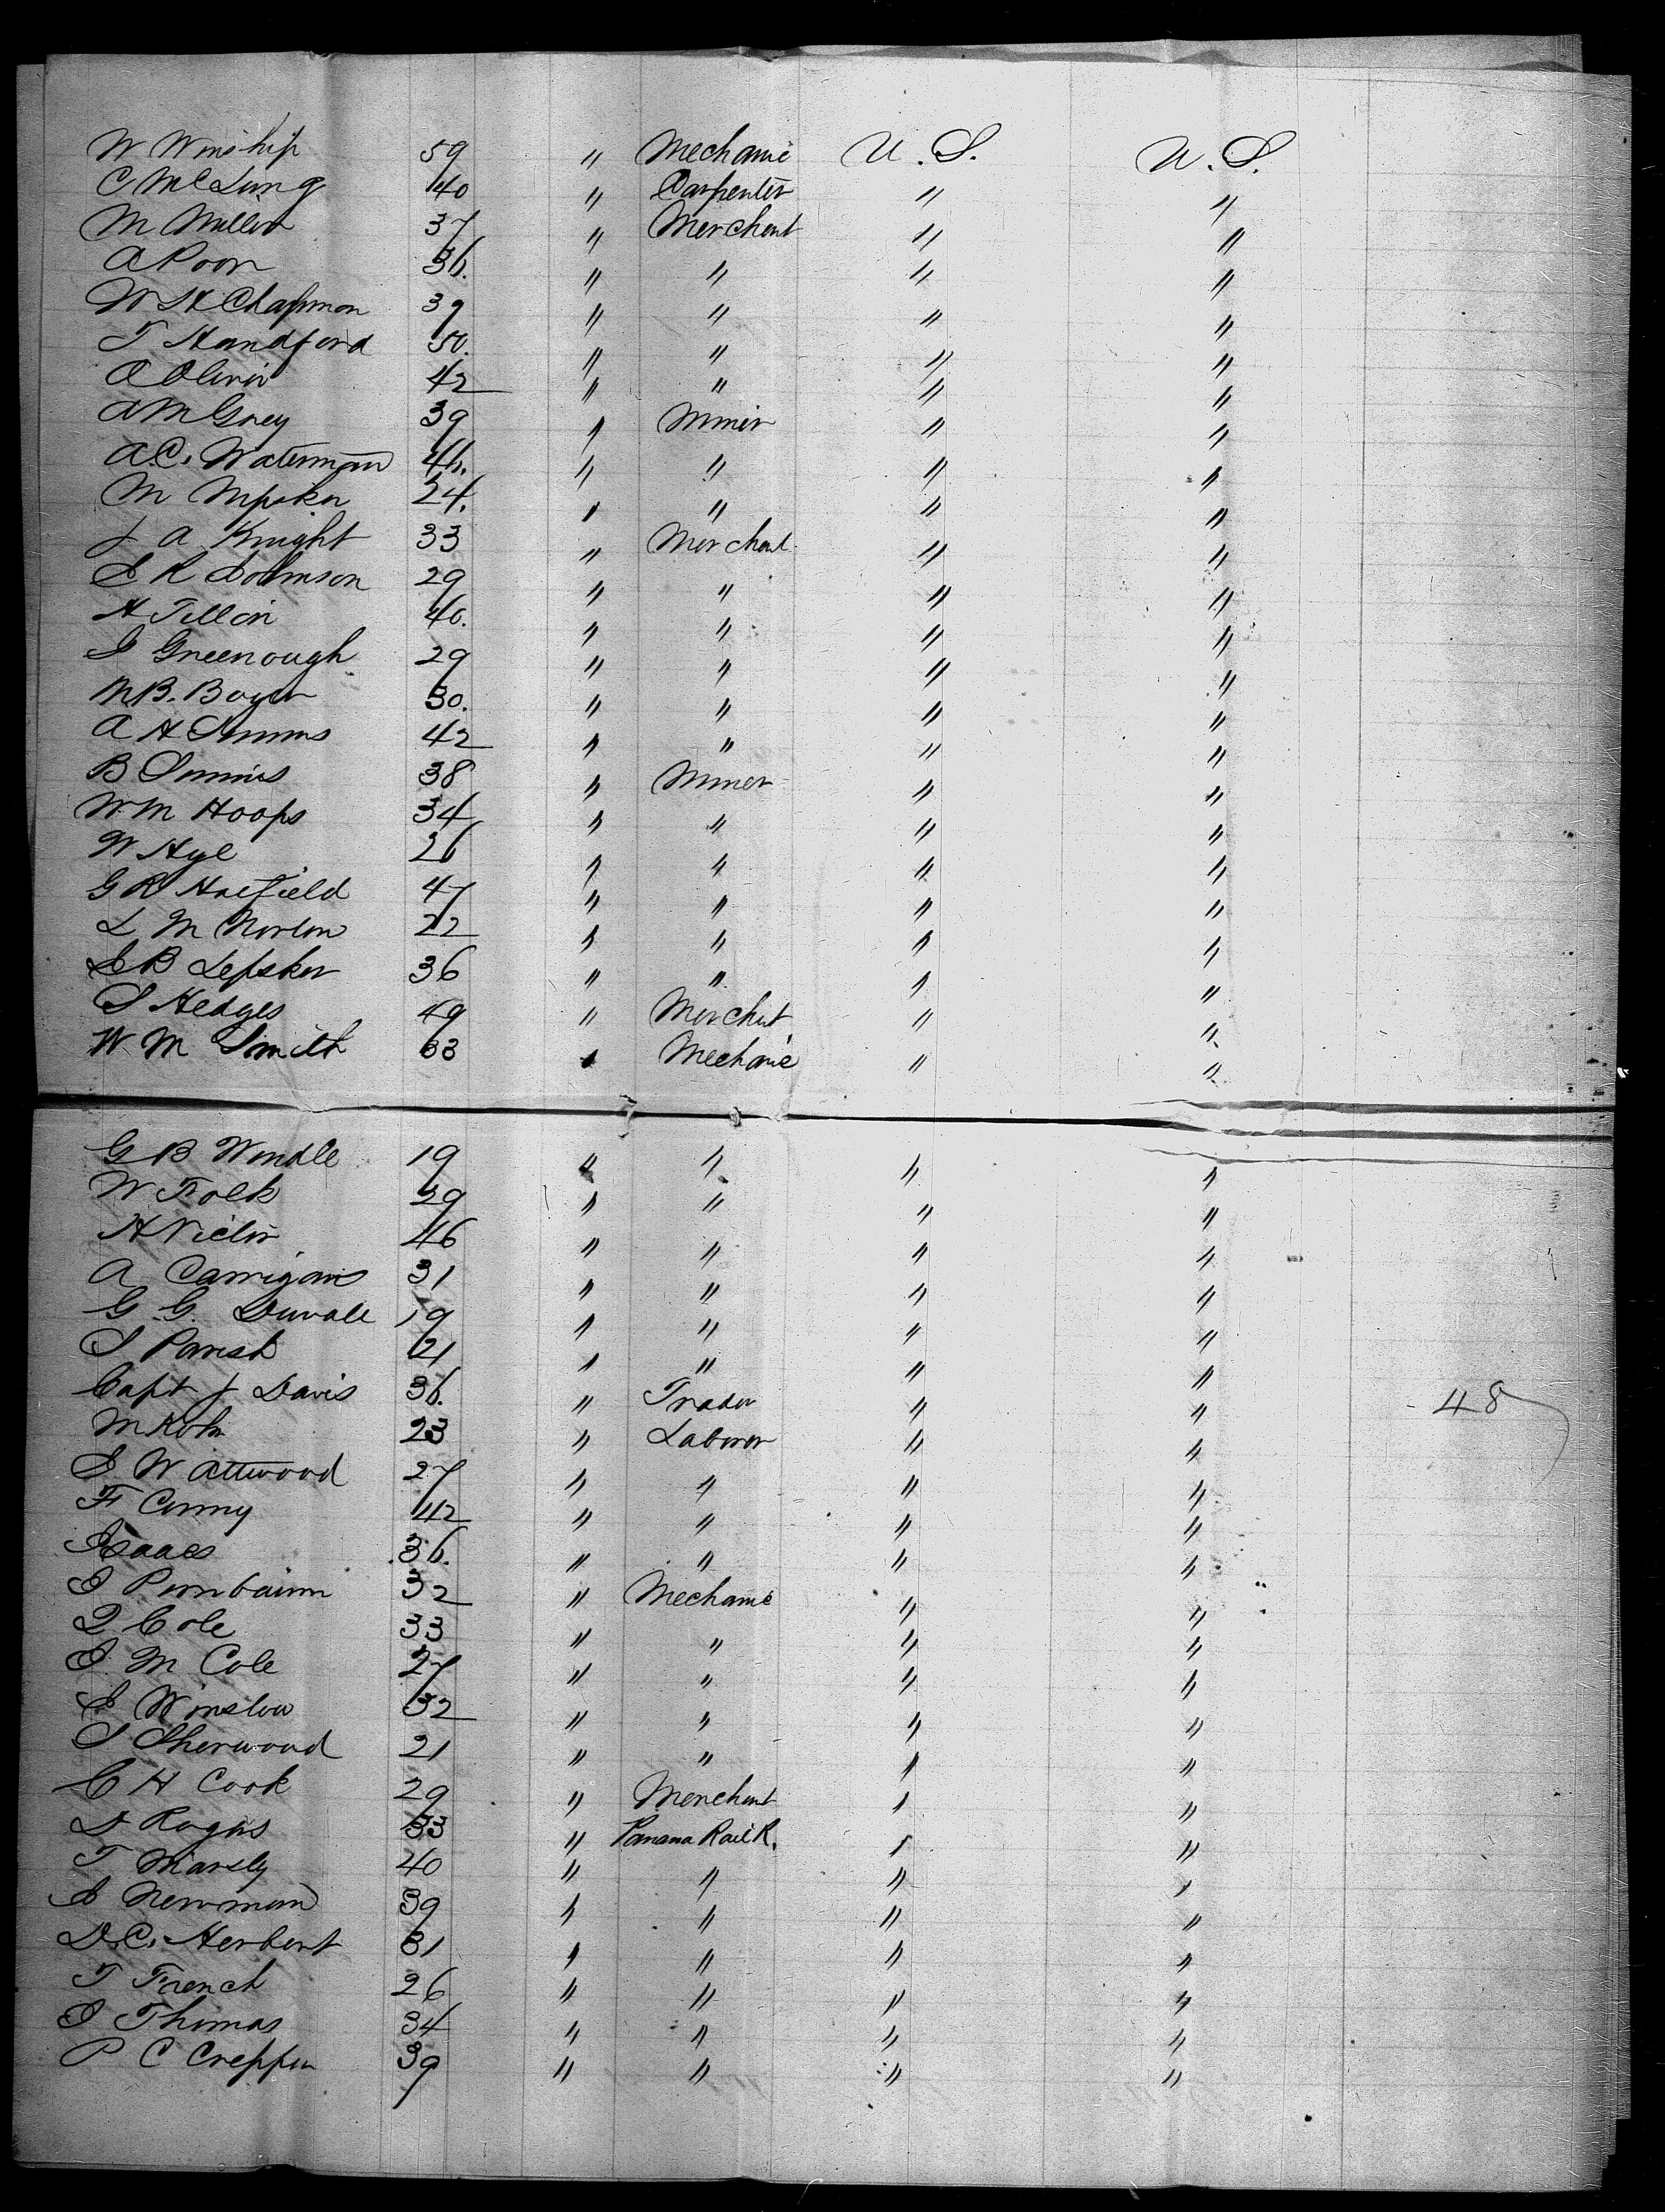 W Winship 59 " Mechanic U.S. U.S.
C McLung 40 " Carpenter " "
M Miller 37 " Merchant " "
A Poor 36. " " " "
W H Chapman 39 " " " "
T Handford 50. " " " "
A Oliver 42 " " " "
A M Grey 39 " Miner " "
A.C. Waterman 46. " " " "
M 24. " " " "
J A Knight 33 " Merchant " "
E R 29 " " " "
H Tillon 40. " " " "
S Greenough 29 " " " "
M B. Boyer 30. " " " "
A H Simms 42 " " " "
B Simms 38 " Miner " "
W M Hoops 34 " " " "
W Hyl 26 " " " "
G R Hatfield 47 " " " "
L M Norton 22 " " " "
E B 36 " " " "
S Hedges 49 " Merchant " "
W M Smith 63 " Mechanic " "
G B Windle 19 " " " "
W Folk 29 " " " "
H Victor 46 " " " "
A Carrigan 31 " " " "
G. G. Duvall 19 " " " "
S Parish 21 " " " "
Capt J Davis 36. " Trader " " 48
M Kohn 23 " Laborer " "
E W Attwood 27 " " " "
F Conny 42 " " " "
Isaacs 36. " " " "
S 32 " Mechanic " "
L Cole 33 " " " "
I. M Cole 27 " " " "
E Winslow 32 " " " "
S Sherwood 21 " " " "
C H Cook 29 " Merchant " "
D Rogers 33 " Panama Rail R. " "
T Marsly 40 " " " "
E Newman 39 " " " "
D.C. Herbert 31 " " " "
T French 26 " " " "
I Thomas 34 " " " "
P C Creppin 39 " " " "